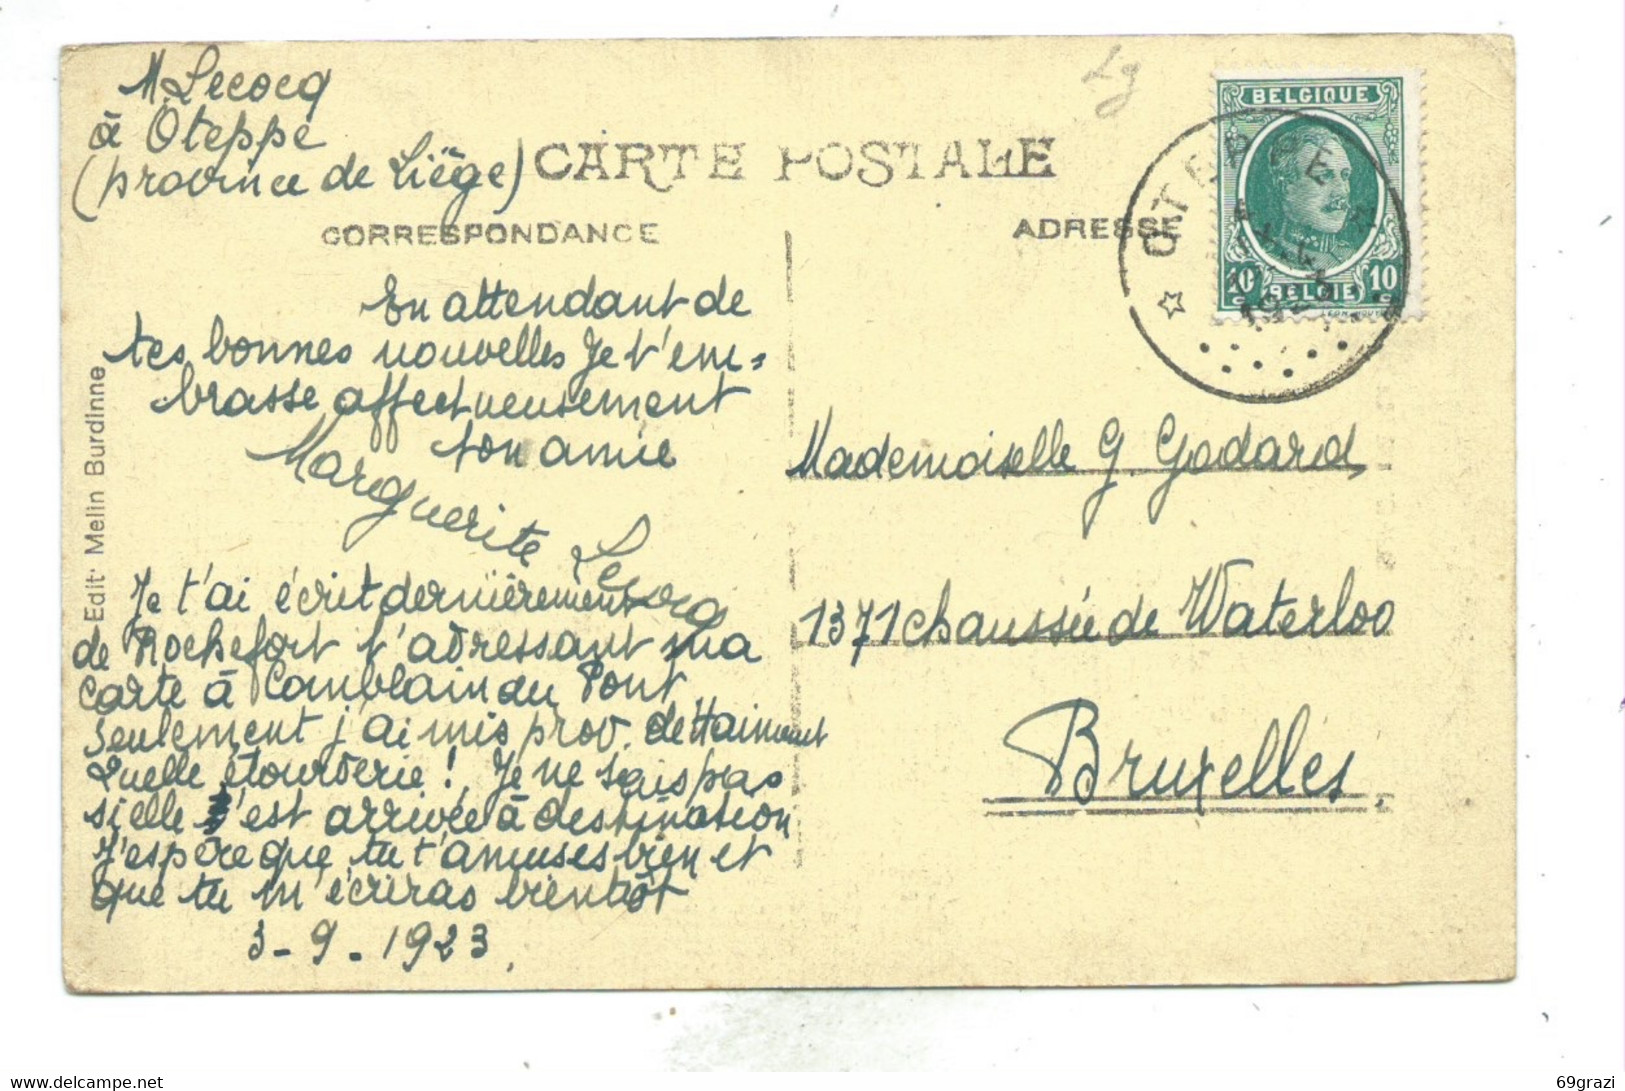 M. Lecocq
à Oteppe
(province de Liège)
CARTE POSTALE
CORRESPONDANCE
En attendant de
tes bonnes nouvelles je t'em-
brasse affectueusement
ton amie
Marguerite Lecocq
Je t'ai écrit dernièrement
de Rochefort t'adressant ma
carte à Comblain du Pont
seulement j'ai mis prov. de Hainaut
Quelle étourderie! Je ne sais pas
si elle est arrivée à destination
J'espère que tu t'amuses bien et
que tu m'écriras bientôt
3-9-1923.
Edit. Melin Burdinne
Lg
ADRESSE
BELGIQUE
10c 10
BELGIE
OTEPPE
1923
Mademoiselle G. Godard
1371 chaussée de Waterloo
Bruxelles.
69grazi